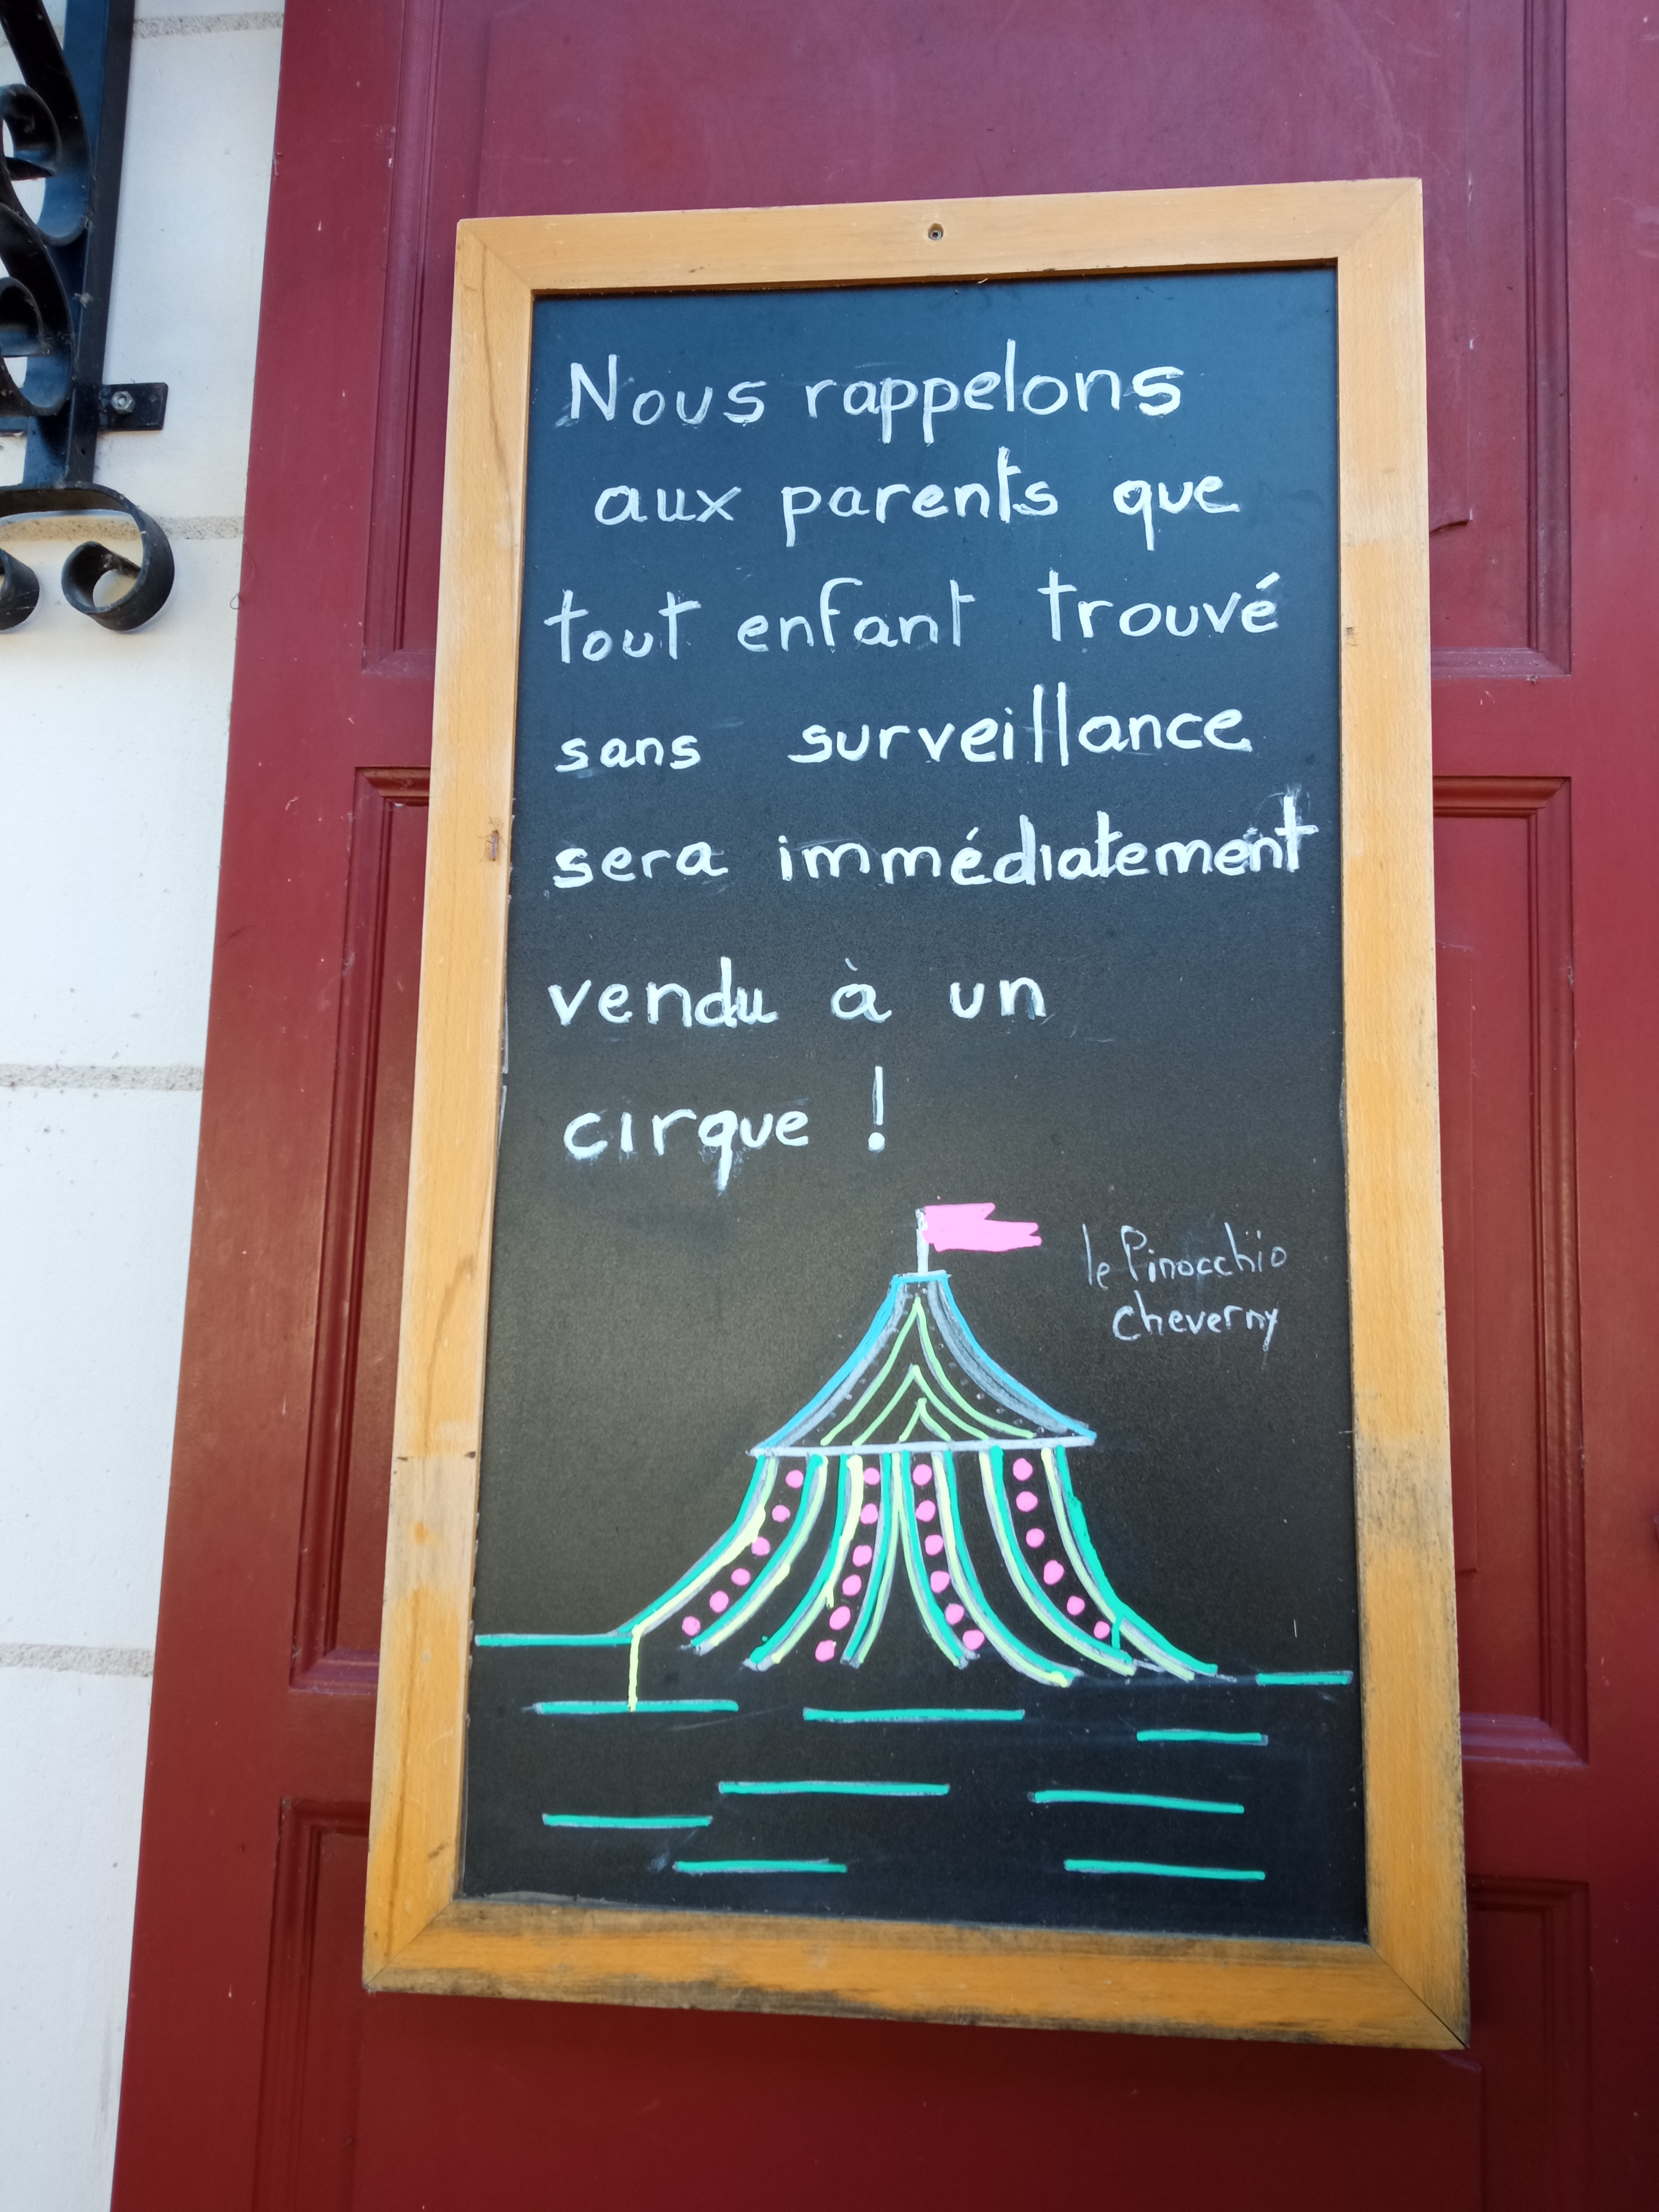 Nous rappelons
aux parents que
tout enfant trouvé
sans surveillance
sera immédiatement
vendu à un
cirque !
le Pinocchio
Cheverny